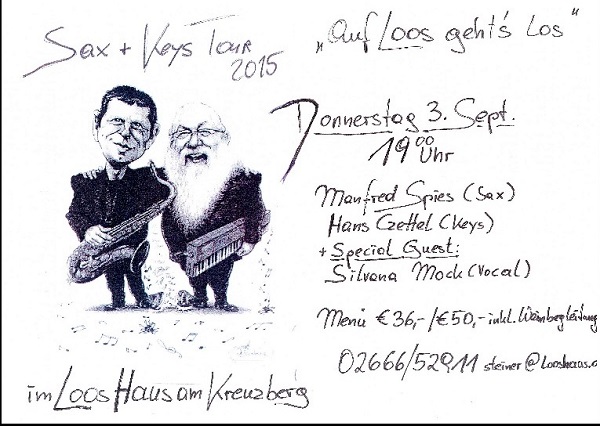 Sax + Keys Tour
2015
„Auf Loos geht's Los"
Donnerstag 3. Sept.
19 00 Uhr
Manfred Spies (Sax)
Hans Czettel (Keys)
+ Special Guest:
Silvana Mock (Vocal)
Menü € 36,-/€ 50,- inkl. Weinbegleitung
02666/52911 steiner@looshaus.a
im Loos Haus am Kreuzberg